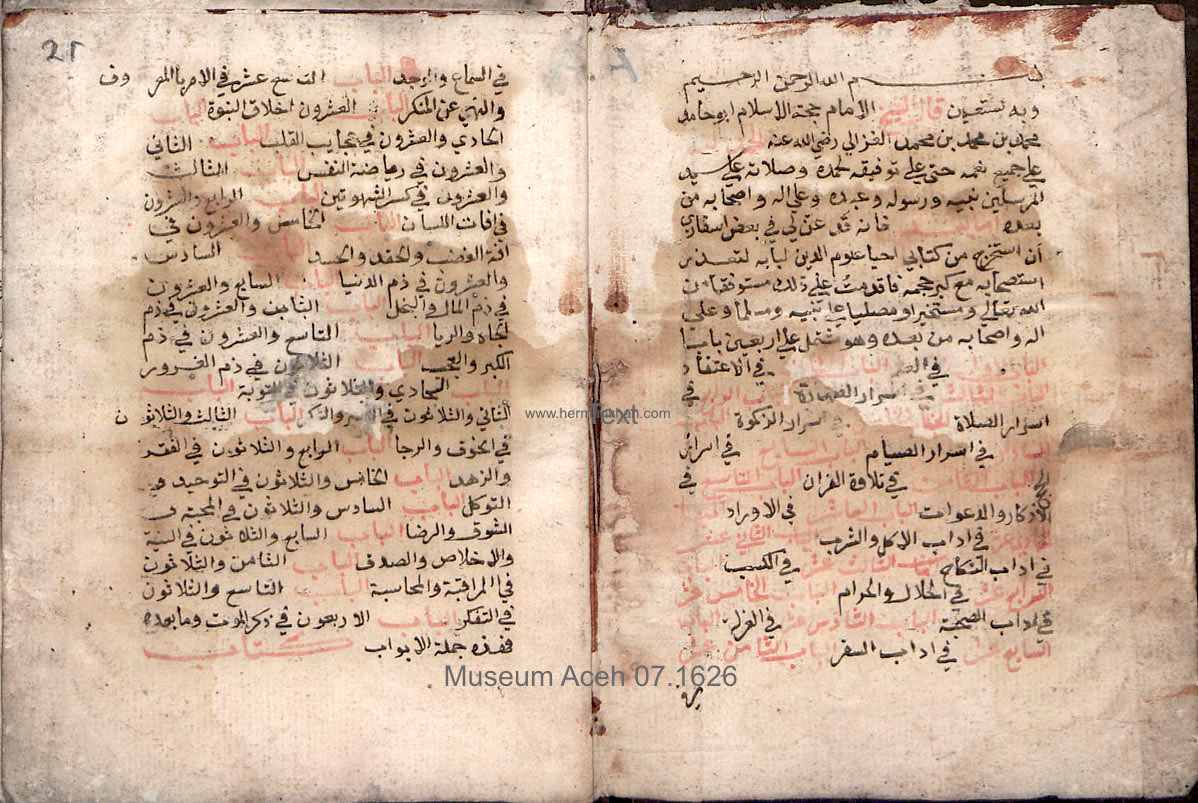 بسم الله الرحمن الرحيم
وبه نستعين قال الشيخ الامام حجة الاسلام ابو حامد
محمد بن محمد بن محمد الغزالي رضي الله عنه الحمد لله
علي جميع نعمه حتي علي توفيقه لحمده وصلاته علي سيد
المرسلين نبيه ورسوله وعبده وعلي اله واصحابه من
بعده اما بعد فانه قد عن لي في بعض اسفاري
أن استخرج من كتابي احيا علوم الدين لبابه لتعذر
استصحابه مع كبر حجمه فاقدمت علي ذلك مستوفقا من
الله تعالي ومستخيرا ومصليا علي نبيه ومسلما وعلي
اله واصحابه من بعده وهو يشتمل علي اربعين بابا
الباب الاول في العلم الباب الثاني في الاعتقاد
الباب الثالث في اسرار الطهارة الباب الرابع في
اسرار الصلاة الباب الخامس في اسرار الزكوة الباب
السادس في اسرار الصيام الباب السابع في اسرار
الحج الباب الثامن في تلاوة القران الباب التاسع في
الاذكار والدعوات الباب العاشر في الاوراد الباب
الحادي عشر في اداب الاكل والشرب الباب الثاني عشر
في اداب النكاح الباب الثالث عشر في الكسب الباب
الرابع عشر في الحلال والحرام الباب الخامس عشر
في اداب الصحبة الباب السادس عشر في العزلة الباب
السابع عشر في اداب السفر الباب الثامن عشر
في
25
في السماع والوجد الباب التاسع عشر في الامر بالمعروف
والنهي عن المنكر الباب العشرون اخلاق النبوة الباب
الحادي والعشرون في عجايب القلب الباب الثاني
والعشرون في رياضة النفس الباب الثالث
والعشرون في كسر الشهوتين الباب الرابع والعشرون
في افات اللسان الباب الخامس والعشرون في
افة الغضب والحقد والحسد الباب السادس
والعشرون في ذم الدنيا الباب السابع والعشرون
في ذم المال والبخل الباب الثامن والعشرون في ذم
الجاه والريا الباب التاسع والعشرون في ذم
الكبر والعجب الباب الثلاثون في ذم الغرور
الباب الحادي والثلاثون في التوبة الباب
الثاني والثلاثون في الصبر والشكر الباب الثالث والثلاثون
في الخوف والرجا الباب الرابع والثلاثون في الفقر
والزهد الباب الخامس والثلاثون في التوحيد في
التوكل الباب السادس والثلاثون في المحبة
الشوق والرضا الباب السابع والثلاثون في النية
والاخلاص والصدق الباب الثامن والثلاثون
في المراقبة والمحاسبة الباب التاسع والثلاثون
في التفكر الباب الاربعون في ذكر الموت وما بعده
فهذه جملة الابواب كتاب
Text
Museum Aceh 07.1626